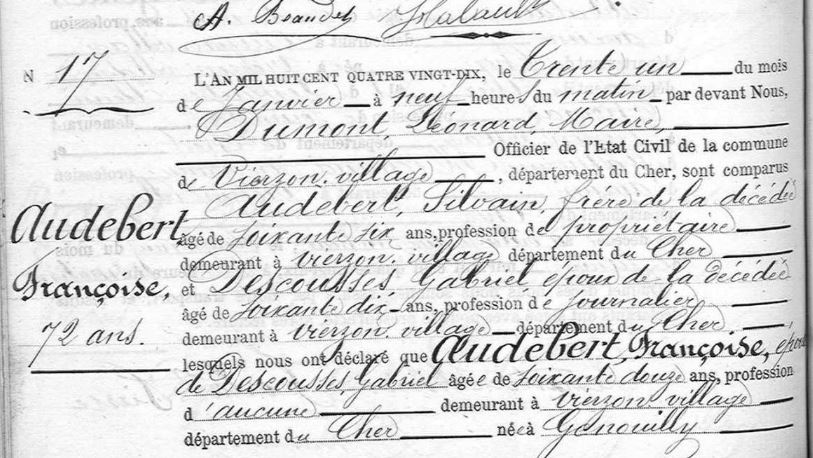 A. Beaudet Habault
N 17
L'AN MIL HUIT CENT QUATRE VINGT-DIX, le Trente un du mois
de Janvier à neuf heures du matin par devant Nous,
Dumont, Léonard, Maire,
Officier de l'Etat Civil de la commune
de Vierzon village, département du Cher, sont comparus
Audebert, Silvain, frère de la décédée
âgé de soixante six ans, profession de propriétaire
demeurant à vierzon village département du Cher
et Descousses Gabriel, époux de la décédée
âgé de soixante dix ans, profession de journalier
demeurant à vierzon village département du Cher
lesquels nous ont déclaré que Audebert, Françoise, épouse
de Descousses, Gabriel âgée de soixante douze ans, profession
d'aucune demeurant à vierzon village
département du Cher née à Genouilly
Audebert
Françoise,
72 ans.